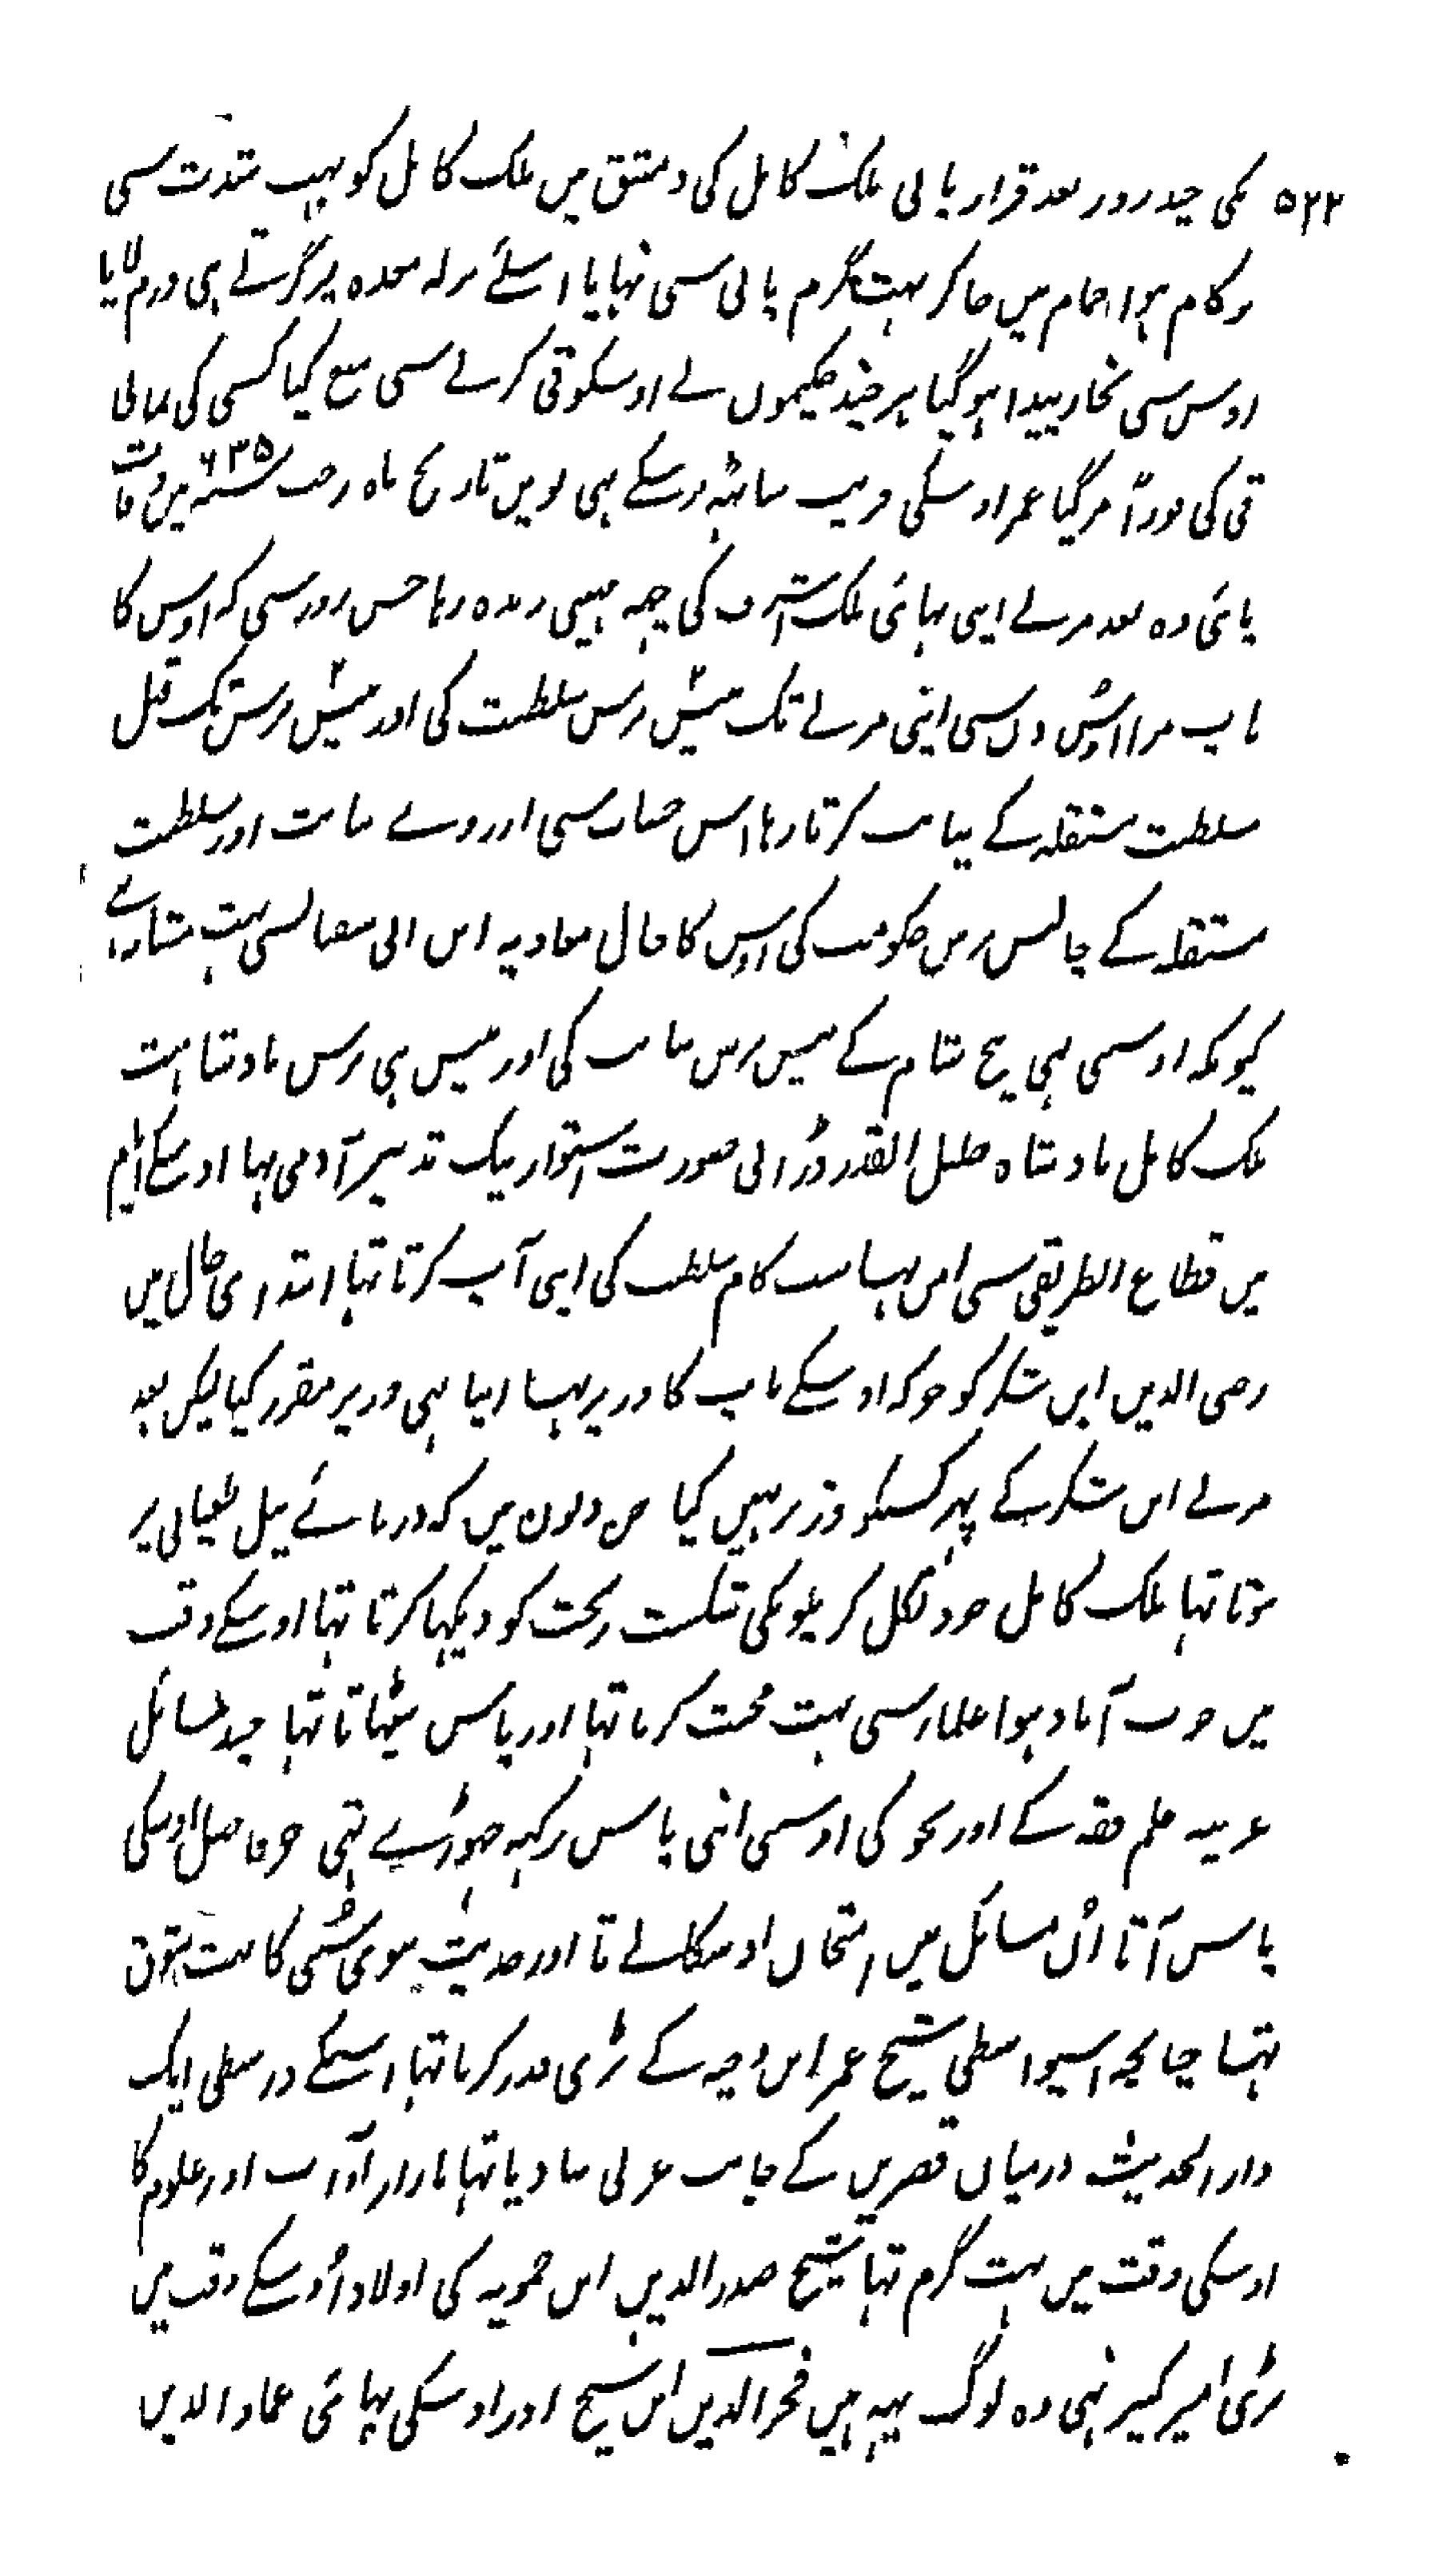 ۵۲۲ کی چند روز بعد قرار پانی ملک کامل کی دمشق میں ملک کامل کو بہت شدت سی
زکام ہوا حمام میں جا کر بہت گرم پانی سی نہایا اسلئے نزلہ معدہ پر گرتے ہی ورم لایا
اوس سی بخار پیدا ہو گیا ہر چند حکیموں نے اوسکو قی کرنے سی منع کیا کسی کی نمانی
قی کی فوراً مر گیا عمر اوسکی قریب ساٹہہ برسکے ہی نویں تاریخ ماہ رجب سنہ ۶۳۵ میں وفات
پائی وہ بعد مرنے اپنی بہائی ملک اشرف کی چہہ مہینی زندہ رہا جس روز سی کہ اوس کا
باپ مرا اوس دن سی اپنی مرنے تک بیس برس سلطنت کی اور بیس برس تک قبل
سلطنت مستقلہ کے نیابت کرتا رہا اس حساب سی ازروے نیابت اور سلطنت
مستقلہ کے چالیس برس حکومت کی اوس کا حال معاویہ ابن ابی سفیان سی بہت مشابہ ہے
کیونکہ اوسی بہی بیچ شام کے بیس برس نیابت کی اور بیس ہی برس بادشاہت
ملک کامل بادشاہ جلیل القدر ڈرانی صورت استوار نیک تدبیر آدمی تہا اوسکے ایام
میں قطاع الطریق سی امن تہا سب کام سلطنت کی اپنی آپ کرتا تہا ابتداءی حال میں
رضی الدین ابن شکر کو جو کہ اوسکے باپ کا وزیر تہا اپنا بہی وزیر مقرر کیا لیکن بعد
مرنے ابن شکر کے پہر کسیکو وزیر نہیں کیا جن دنون میں کہ دریائے نیل طغیانی پر
ہوتا تہا ملک کامل خود نکل کر پلونکی شکست ریخت کو دیکہا کرتا تہا اوسکے وقت
میں خوب آباد ہوا علماء سی بہت محبت کرتا تہا اور پاس بیٹہاتا تہا چند مسائل
غریبہ علم فقہ کے اور نحو کی اوسی اپنی پاس رکہہ چہوڑے تہی جو فاضل اوسکی
پاس آتا اون مسائل میں امتحان اوسکا لے تا اور حدیث نبوی سُننی کا بہت شوق
تہا چنانچہ اسیواسطی شیخ عمر ابن وحیہ کے بڑی قدر کرتا تہا اسکے واسطی ایک
دار الحدیث درمیان قصرین کے جانب غربی بنا دیا تہا بازار آداب اور علوم کا
اوسکی وقت میں بہت گرم تہا شیخ صدرالدین ابن حمویہ کی اولاد اوسکے وقت میں
بڑی امیر کبیر تہی وہ لوگ یہہ ہیں فخرالدین ابن شیخ اور اوسکی بہائی عماد الدین